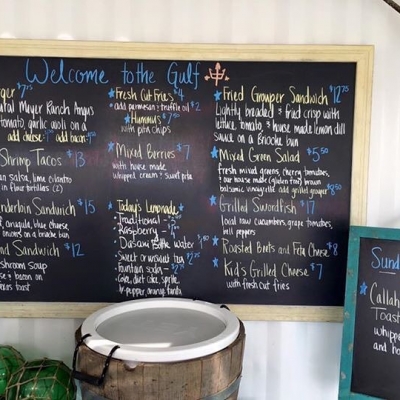 Welcome to the Gulf
ger $7
Meyer Ranch Angus
tomato, garlic aioli on a
add cheese add bacon
Shrimp Tacos $13
salsa, lime cilantro
in flour tortillas (2)
nderloin Sandwich $15
arugula, blue cheese,
onions on a brioche bun
nd Sandwich $12
shroom soup
ese + bacon on
Fresh Cut Fries $4
add parmesan & truffle oil $2
Hummus $7.50
with pita chips
Mixed Berries $7
with house made
whipped cream &
Today's Lemonade
Traditional
Raspberry
Dasani Bottle Water
Sweet or unsweet tea
fountain soda
Coke, diet coke, sprite,
dr pepper, orange fanta
Fried Grouper Sandwich $12.75
Lightly breaded & fried crisp with
lettuce, tomato, & house made lemon dill
sauce on a Brioche bun
Mixed Green Salad $5.50
fresh mixed greens, cherry tomatoes,
our house made (gluten free) brown
balsamic vinaigrette add grilled grouper $8.50
Grilled Swordfish $17
local raw cucumbers, grape tomatoes,
bell peppers
Roasted Beets and Feta Cheese $8
Kid's Grilled Cheese $7
with fresh cut fries
Sund
Callah
Toast
whipp
and ho